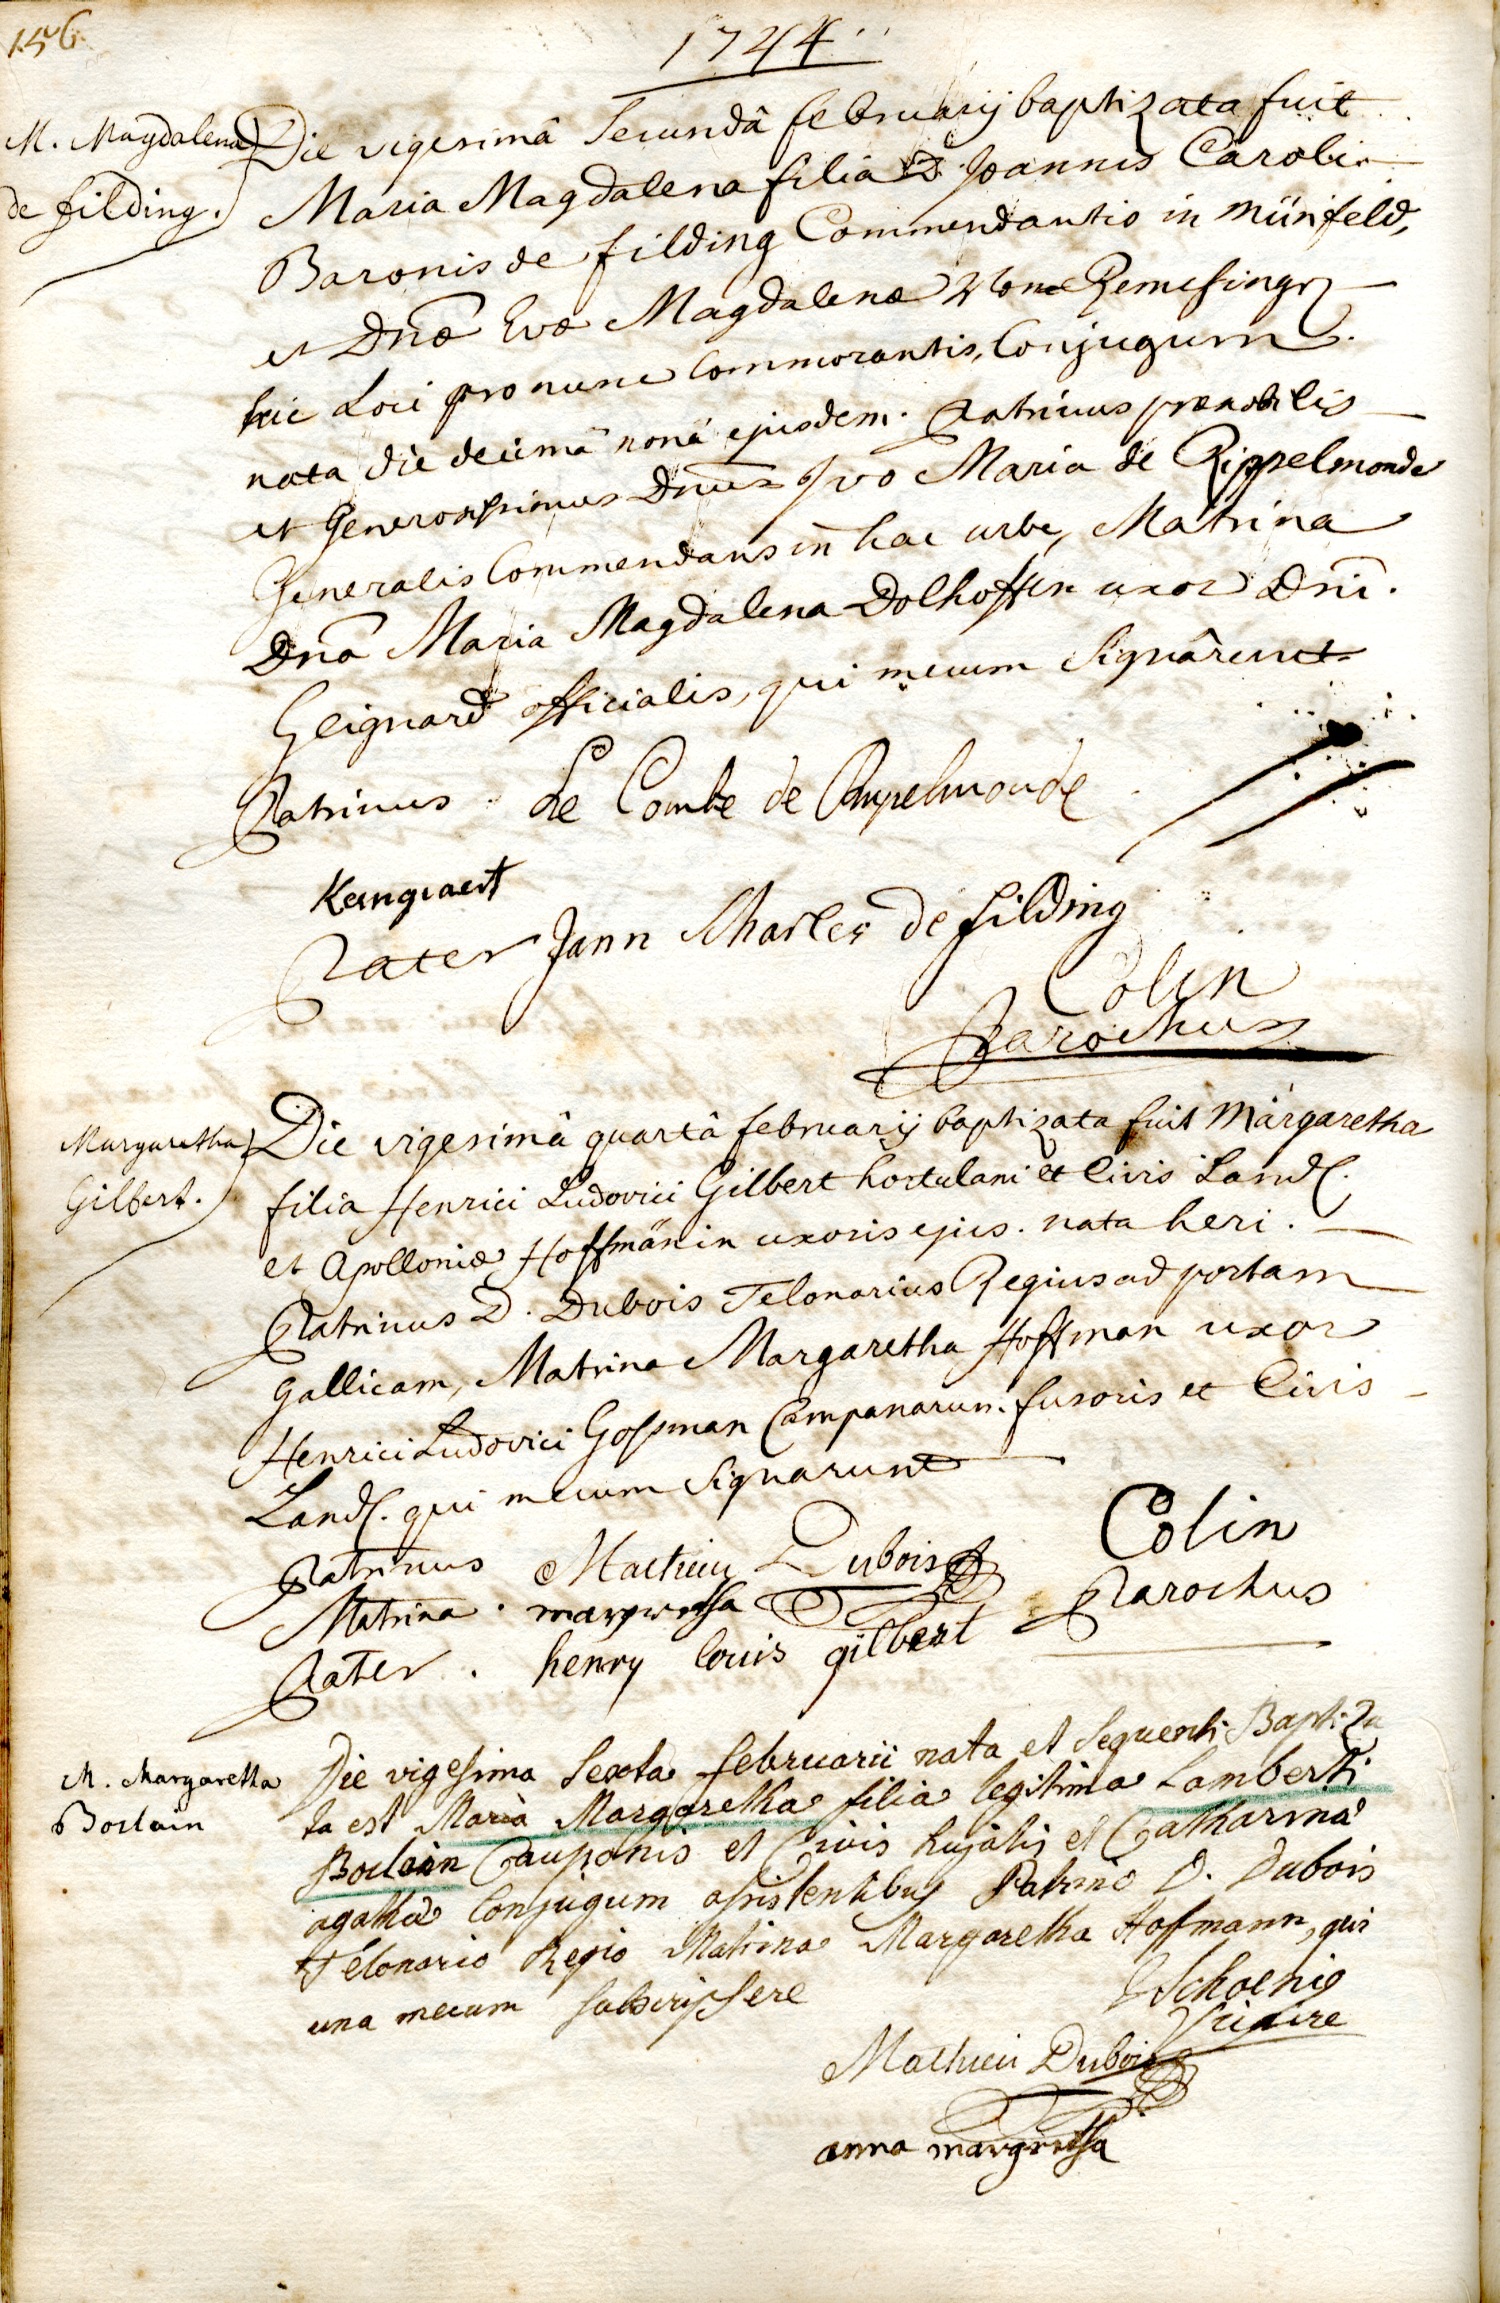 156
1744
M. Magdalena
de filding.
Die vigesimâ Secundâ februarij baptizata fuit
Maria Magdalena filia D. Joannis Caroli
Baronis de filding Commendantis in Münfeld,
et Dnæ Evæ Magdalenæ Von Remesinger
hic Loci pro nunc Commorantis, Conjugum.
nata die decimâ nonâ ejusdem. Patrinus prænobilis
et Generosissimus Dnus Ivo Maria de Rippelmonde
Generalis Commendans in hac urbe, Matrina
Dna Maria Magdalena Dolhoffen uxor Dni.
Geignard officialis, qui mecum Signârunt
Patrinus Le Comte de Rupelmonde
Pater Jann Charles de filding
Colin
Parochus
Margaretha
Gilbert.
Die vigesimâ quartâ februarij baptizata fuit Margaretha
filia Henrici Ludovici Gilbert hortulani et Civis Land.
et Apolloniæ Hoffmänin uxoris ejus. nata heri.
Patrinus D. Dubois Telonarius Regius ad portam
Gallicam, Matrina Margaretha Hoffman uxor
Henrici Ludovici Gosman Campanarum fusoris et Civis
Land. qui mecum Signarunt
Patrinus Mathieu Dubois
Colin
Matrina. margretha
Parochus
Pater. henry louis gilbert
M. Margaretha
Boclain
Die vigesima Sexta februarii nata et Sequenti Baptiza
ta est Maria Margaretha filia legitima Lamberti
Boclain Cauponis et Civis hujatis et Catharina
agatha Conjugum assistentibus Patrino D. Dubois
Telonario Regio Matrina Margaretha Hofmann, qui
una mecum subscripsere
Schoenig
Vicaire
Mathieu Dubois
anna margretha